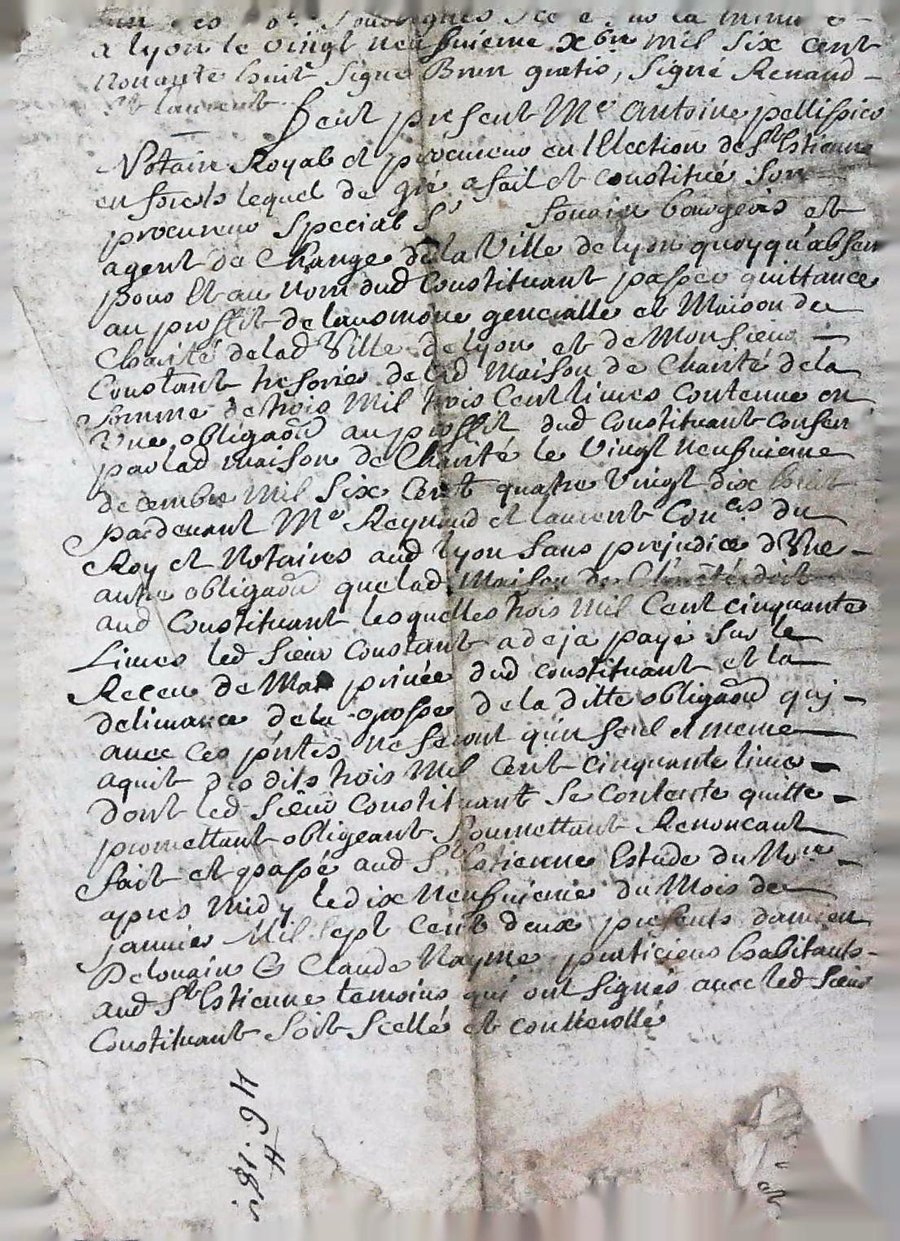 a lyon le vingt neufuieme xbre mil six cent
nonante huit signé Brun gratis, signé Renaud
et laurent
Feut present Me Antoine pellissier
Notaire Royal et procureur en l'Election de St Estienne
en forests lequel de gré a fait et constitué son
procureur special Sr bourgeois et
agent de Change de la Ville de lyon quoyqu'absen
pour et au nom dud Constituant passer quittance
au proffit de lausmone generalle et Maison de
Charité de lad Ville de lyon et de Monsieur
Constant tresorier de lad Maison de Charité de la
somme de trois Mil trois Cent liures Contenue en
Vne obligaõn au proffit dud Constituant Consen
par lad maison de Charité le Vingt neufuieme
decembre Mil Six Cent quatre Vingt dix huit
pardeuant Me Reynaud et laurent Coners du
Roy et Notaires aud lyon sans prejudice d'Vne
autre obligaõn que lad Maison de Charité doit
aud Constituant lesquelles trois Mil Cent cinquante
Liures led Sieur Constant a deja payé sur le
Receu de Main priuée dud constituant et la
deliurance de la grosse de la ditte obligaõn qui
auec ces pntes ne seront qu'un seul et meme
aquit des dits trois Mil Cent cinquante liures
dont led Sieur Constituant se Contente quitte
promettant obligeant Soumettant Renoncant
fait et passé aud St Estienne Estude du Nore
apres midy le dix neufuieme du Mois de
januier Mil sept Cent deux presents damien
Delouain & Claude Nayme praticiens habitants
aud St Estienne temoins qui ont signés auec led Sieur
Constituant soit scellé et controollé